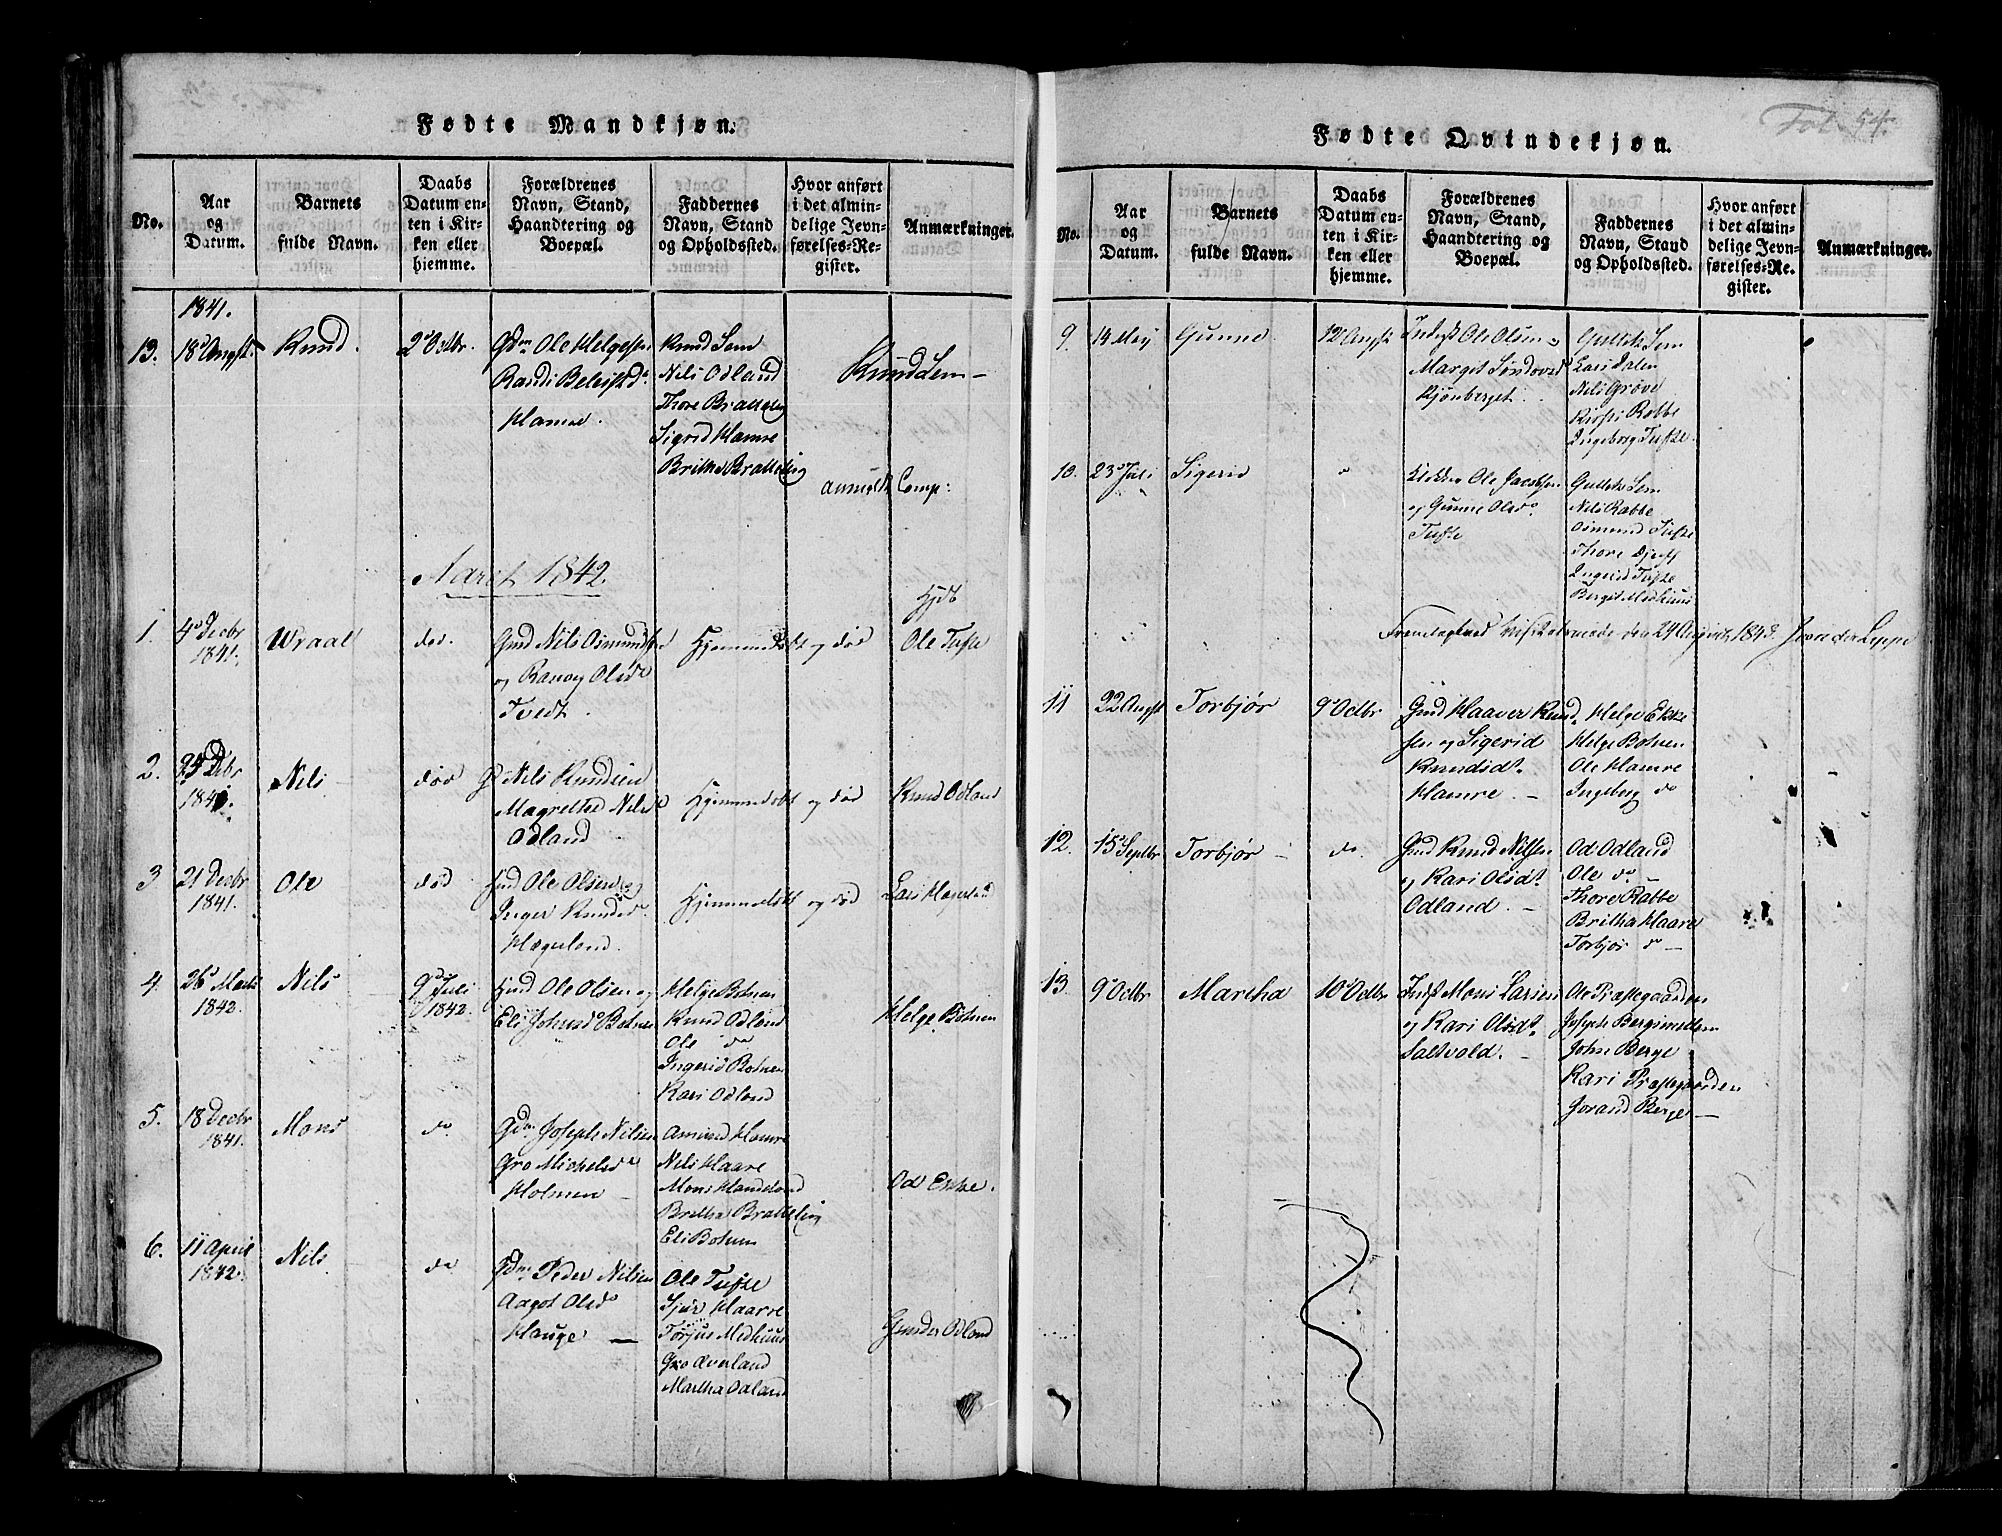 Fol. 54.
Fødte Mandkjøn.
No.
Aar og Datum.
Barnets fulde Navn.
Daabs Datum enten i Kirken eller hjemme.
Forældrenes Navn, Stand, Haandtering og Boepæl.
Faddernes Navn, Stand og Opholdssted.
Hvor anført i det almindelige Jevnførelses-Register.
Anmærkninger.
1841.
13. 18 Augst. Knud. 2 Octbr. Gdm Ole Helgesen
Randi
Hamre.
Knud Sem
Nils Odland
Thore Bratteli
Sigrid Hamre
Britha Bratteli
Knud Sem
anmeldt Comp:
Aaret 1842
1. 4 Decbr 1841. Wraal død. Gmd Nils Osmundsen
og Ranov Olsd
Tvedt.
Hjemmedøbt og død
Hjdt
Ole Tufte
2. Nils død Nils Knudsen
Magrethe Nilsd
Odland
Hjemmedøbt og død
Knud Odland
3 21 Decbr 1841. Ole død Gmd Ole Olsen og
Inger Knudsd
Hægeland.
Hjemmedøbt og død
4. 26 Marts 1842. Nils 9 Juli 1842. Gmd Ole Olsen og
Eli Johnsd Botnen
Helge Botnen
Knud Odland
Ole do
Ingerid Botnen
Kari Odland
Helge Botnen
5. 18 Decbr 1841. Mons do Gdm Joseph Nilsen
Gro Michelsd
Holmen
Amund Hamre
Nils Haare
Mons Handeland
Britha Bratteli
Eli Botnen
Od Ekke.
6. 11 April 1842. Nils do Gdm Peder Nilsen
Aagot Olsd
Hauge
Ole Tufte
Sjur Haarre
Torjus Medhuus
Gro Øverland
Martha Odland
Odland
Fødte Qvindekjøn.
No.
Aar og Datum.
Barnets fulde Navn.
Daabs Datum enten i Kirken eller hjemme.
Forældrenes Navn, Stand, Haandtering og Boepæl.
Faddernes Navn, Stand og Opholdssted.
Hvor anført i det almindelige Jevnførelses-Register.
Anmærkninger.
9. 14 Mey Gunne 12 Augst Inderst Ole Olsen
Margit
Kjønberget.
Gullek Sem
Lars Dalen
Nils Grøve
Kirsti Rabbe
Ingeborg Tufte.
10. 23 Juli Sigerid Klokker Ole Jacobsen
og Gunne Olsd
Tufte
Gullek Sem
Nils Rabbe
Osmund Tufte
Thore
Ingerid Tufte
Bergit Medhuus
den 24 August 1843.
11 22 Augst Torbjør 9 Octbr Gmd Haaver Knud
sen og Sigerid
Knudsd
Hamre.
Helge Ekke
Helge Botnen
Ole Hamre
Ingeborg do
12. 15 Septbr Torbjør do. Gmd Knud Nilssen
og Kari Olsd
Odland.
Od Odland
Ole do
Thore Rabbe
Britha Haare
Torbjør do
13 9 Octbr Martha 10 Octbr Indst Mons Larsen
og Kari Olsd
Saltvold.
Ole Præstegaarden
Joseph Bergsmellem
John Berge
Kari Præstegaarden
Jorand Berge